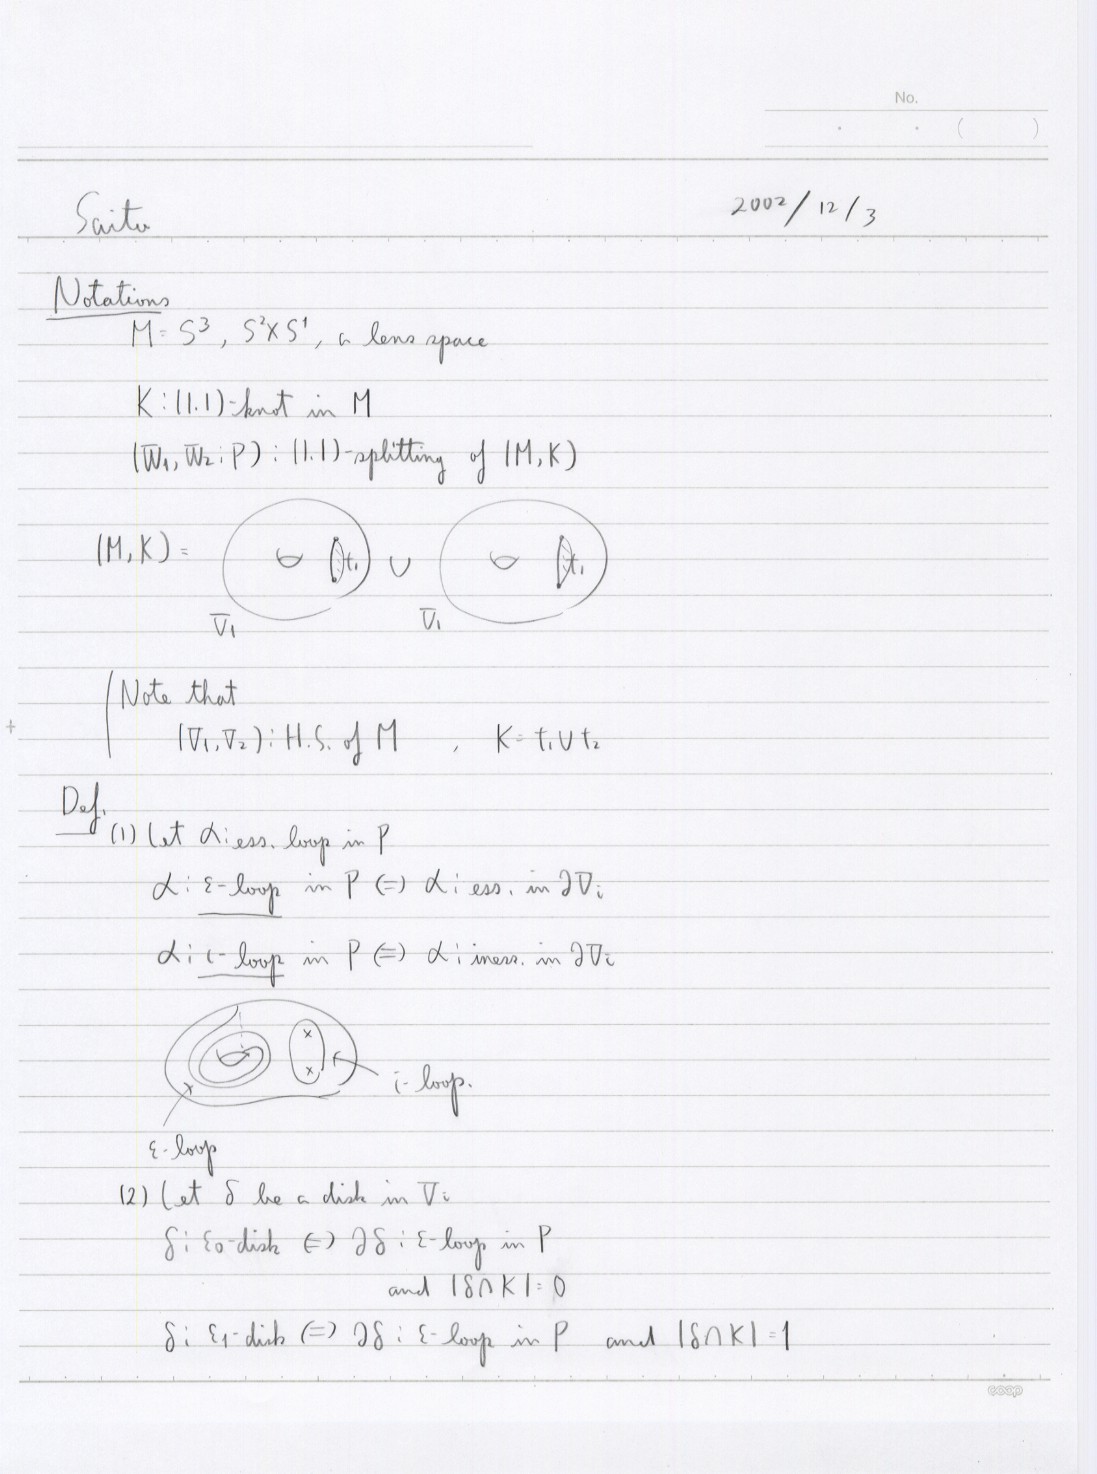 No.
Saito 2002/12/3
Notations
M = S³, S²×S¹, a lens space
K : (1.1)-knot in M
(W̅₁, W̅₂ ; P) : (1.1)-splitting of (M, K)
(M, K) = t₁ ∪ t₁
V̅₁ V̅₁
Note that
(V̅₁, V̅₂) : H.S. of M , K = t₁ ∪ t₂
Def.
(1) Let α : ess. loop in P
α : ε-loop in P ⇔ α : ess. in ∂V̅i
α : ι-loop in P ⇔ α : iness. in ∂V̅i
i-loop.
ε-loop
(2) Let δ be a disk in V̅i
δ : ε₀-disk ⇔ ∂δ : ε-loop in P
and |δ∩K| = 0
δ : ε₁-disk ⇔ ∂δ : ε-loop in P and |δ∩K| = 1
coop